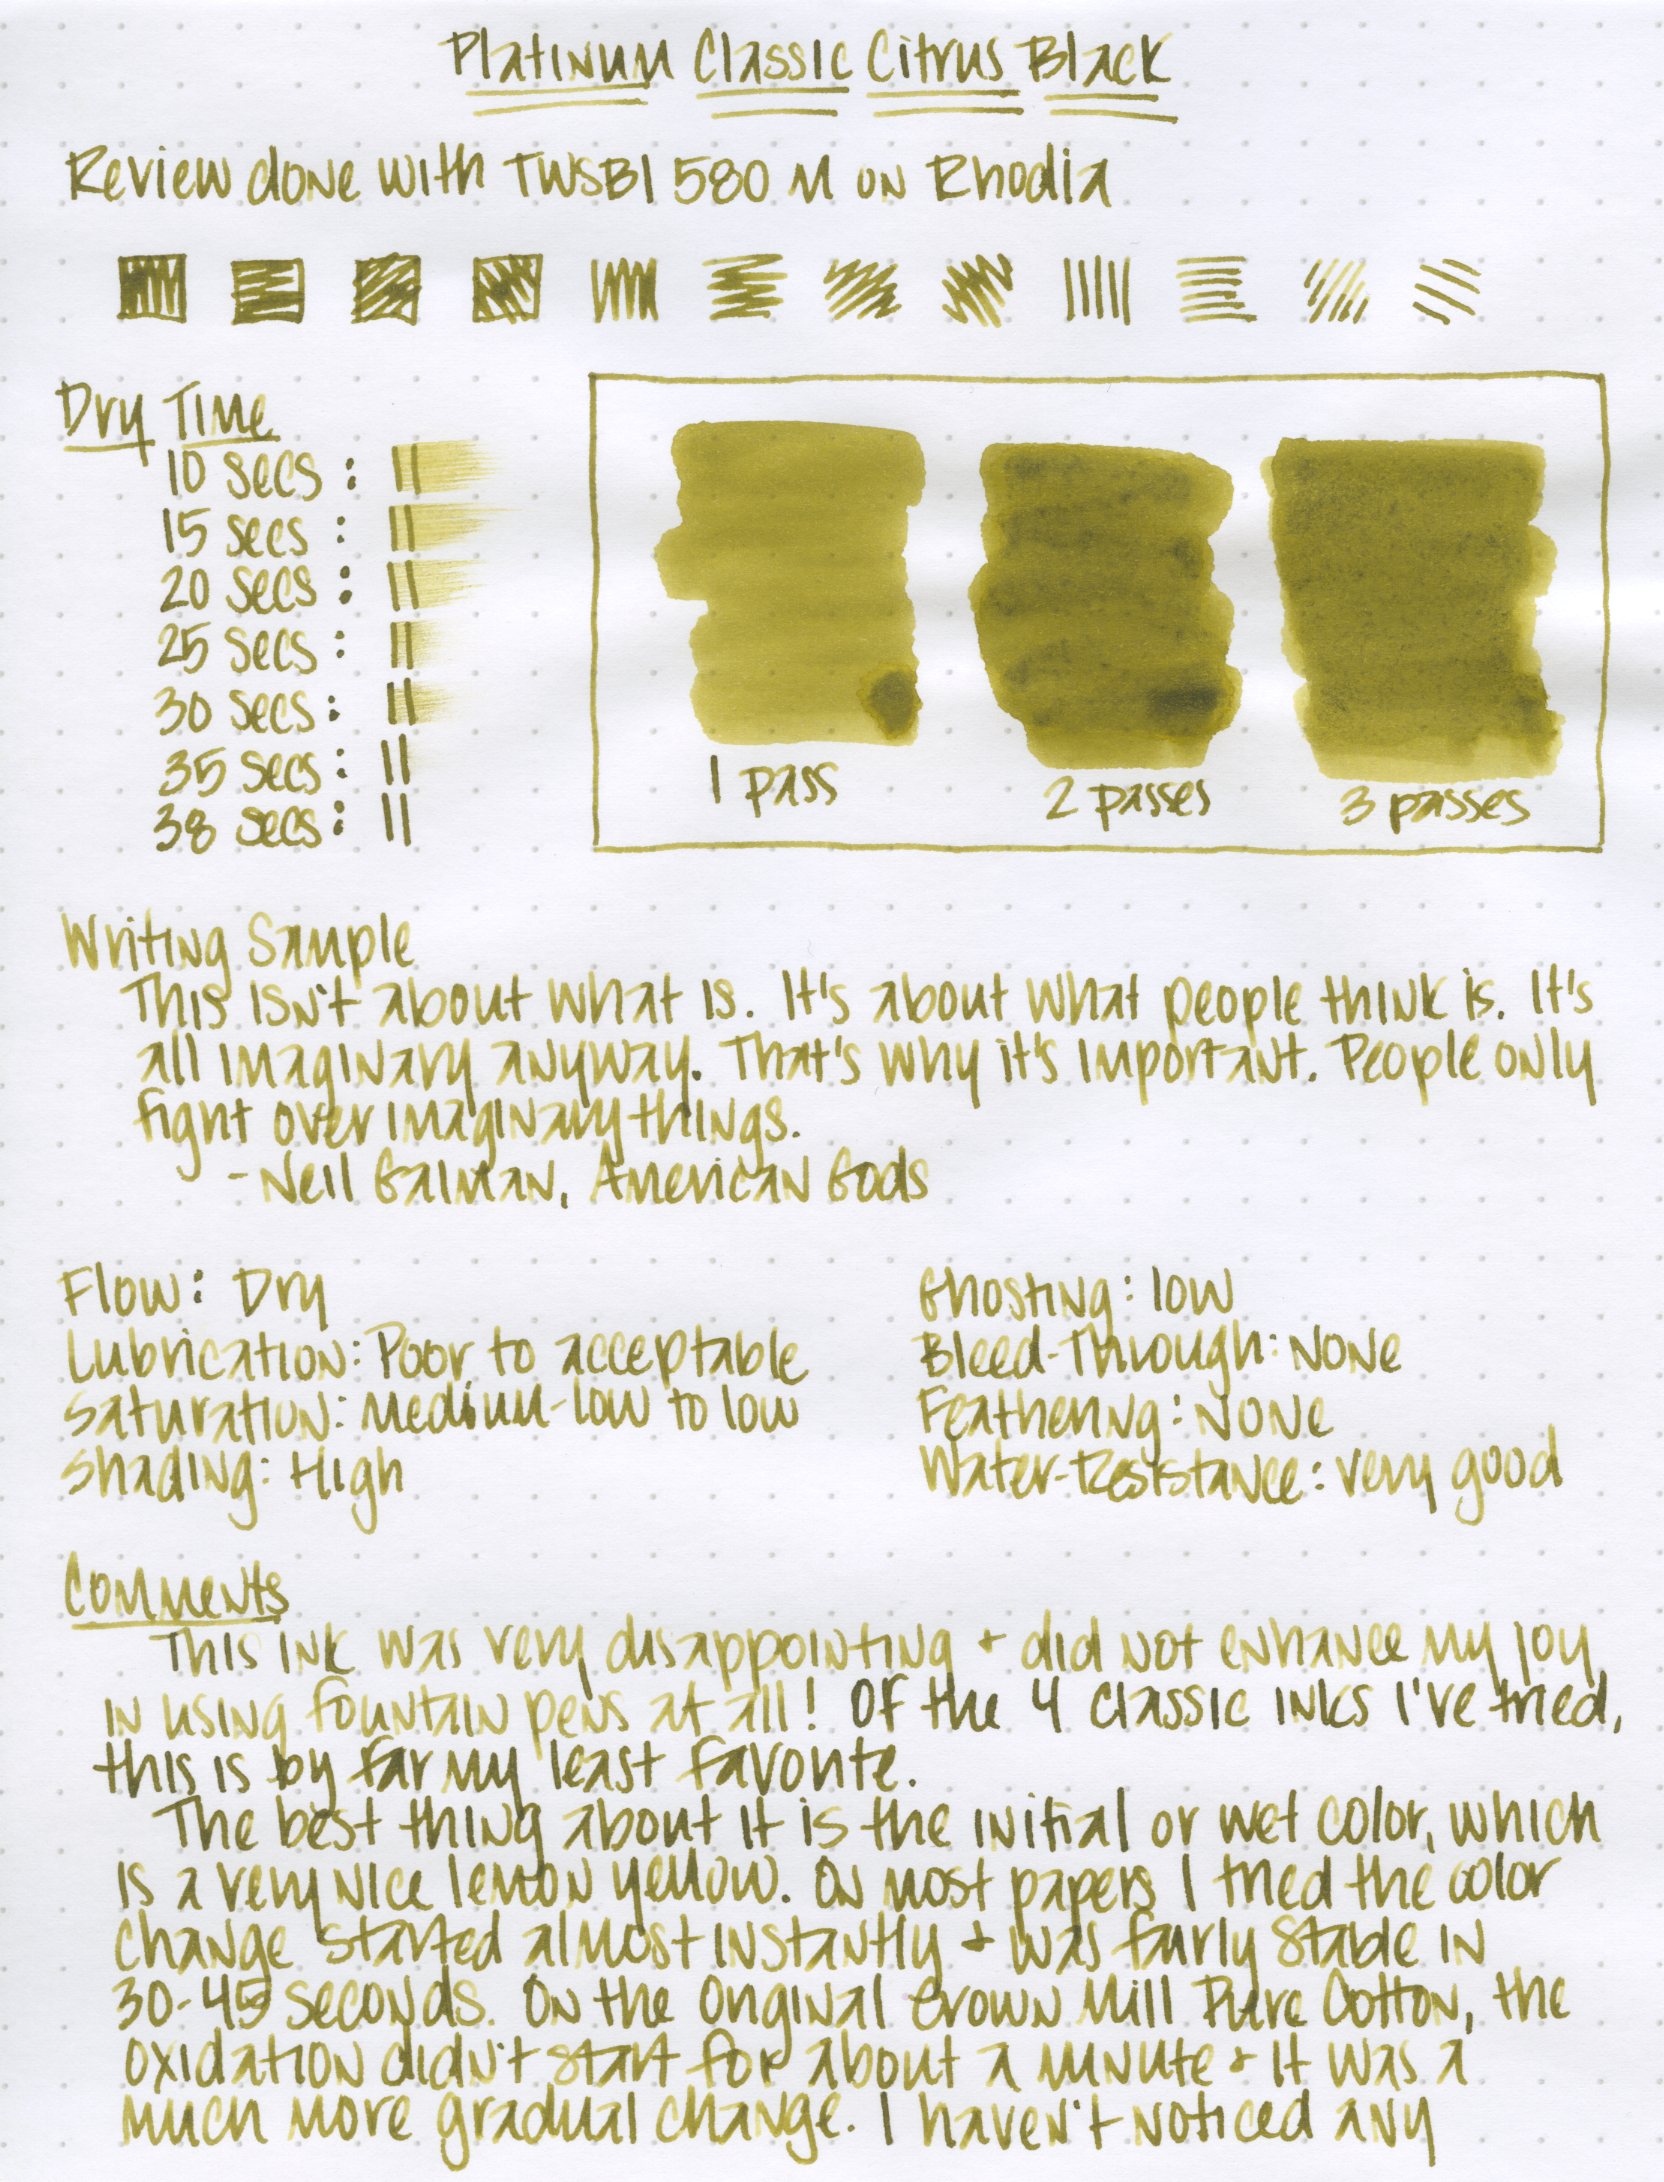 Platinum Classic Citrus Black
Review done with TWSBI 580 M on Rhodia
Dry Time
10 secs :
15 secs :
20 secs :
25 secs :
30 secs :
35 secs :
38 secs :
1 pass
2 passes
3 passes
Writing Sample
This isn't about what is. It's about what people think is. It's
all imaginary anyway. That's why it's important. People only
fight over imaginary things.
- Neil Gaiman, American Gods
Flow: Dry
Lubrication: Poor to acceptable
Saturation: Medium-low to low
Shading: High
Ghosting: low
Bleed-Through: None
Feathering: None
Water-Resistance: very good
Comments
This ink was very disappointing + did not enhance my joy
in using fountain pens at all! Of the 4 Classic inks I've tried,
this is by far my least favorite.
The best thing about it is the initial or wet color, which
is a very nice lemon yellow. On most papers I tried the color
change started almost instantly + was fairly stable in
30-45 seconds. On the Original Crown Mill Pure Cotton, the
oxidation didn't start for about a minute + it was a
much more gradual change. I haven't noticed any